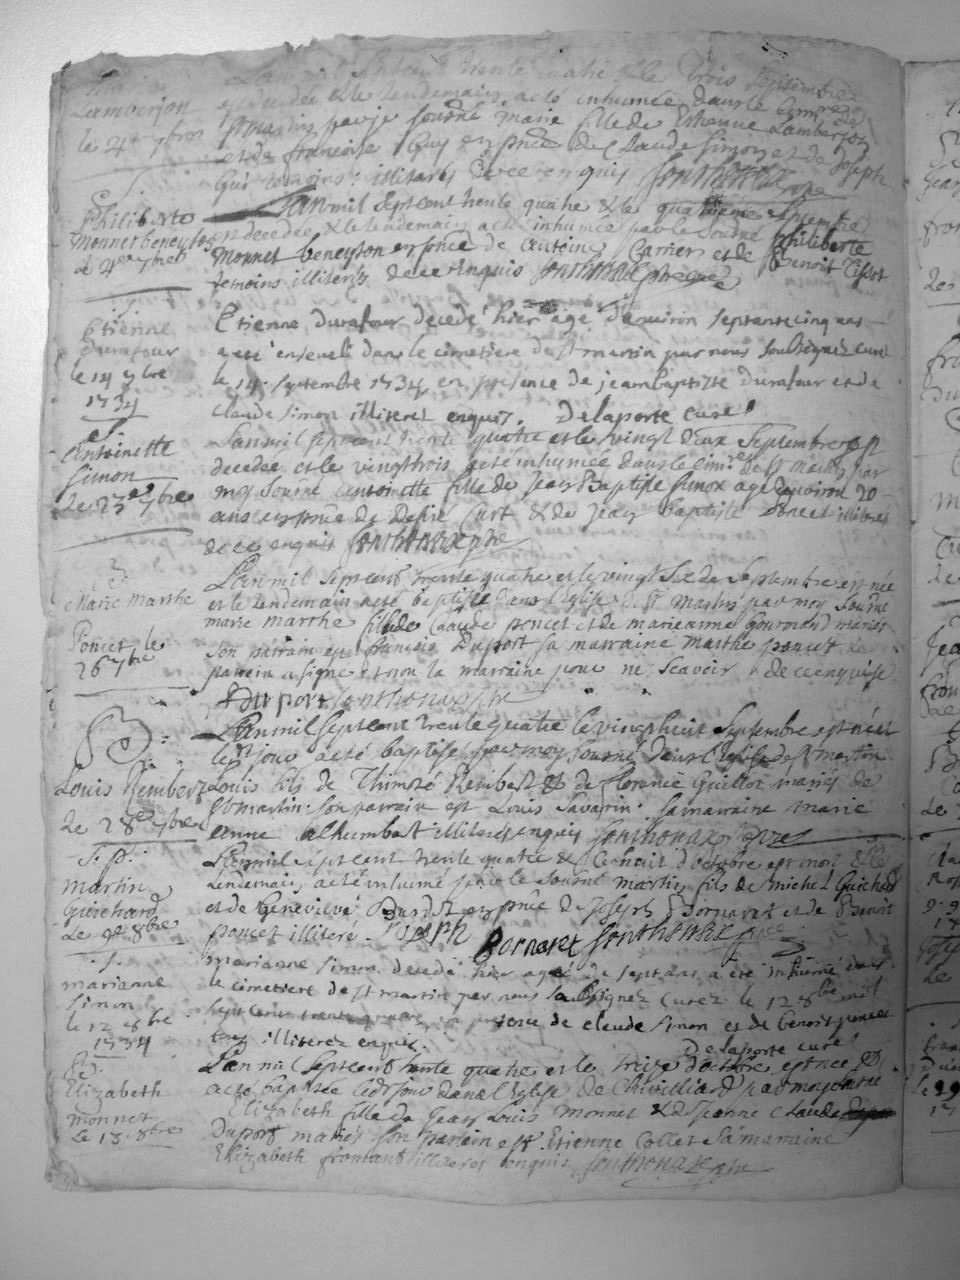 Lamberjon
le 4e 7bre
L'an mil sept cent trente quatre & le trois septembre
est decedée & le lendemain a eté inhumée dans le cimre de
st martin par je sousné marie fille de Estienne Lamberjon
et de francoise Guy en pnce de Claude Simon et de Joseph
Guy temoins illiterés de ce enquis Sonthonax pre
Philiberte
Monnet beneyton
le 4e 7bre
L'an mil sept cent trente quatre & le quatrieme septembre
est decedée & le lendemain a eté inhumée par le sousné philiberte
Monnet beneyton en pnce de antoine Carrier et de Benoit Tissot
temoins illiterés de ce enquis Sonthonax
Etienne
durafour
le 14 7bre
1734
Etienne durafour decedé hier agé d'environ septante cinq ans
a eté enseveli dans le cimetiere de st martin par nous soubsignez curé
le 14 septembre 1734 en presence de jean baptiste durafour et de
claude simon illiteret enquis. Delaporte curé
Antoinette
Simon
Le 23e 7bre
L'an mil sept cent trente quatre et le vingt deux Septembre est
decedée et le vingt trois a eté inhumée dans le cimre de st martin par
moy sousné antoinette fille de Jean Baptiste simon age d'environ 20
ans en pnce de Desiré Curt & de Jean baptiste Poncet illiterés
de ce enquis Sonthonax pre
Marie Marthe
Poncet le
26 7bre
L'an mil sept cent trente quatre et le vingt six de septembre est née
et le lendemain a eté baptisée dans l'Eglise de st Martin par moy sousné
marie marthe fille de Claude poncet et de marieanne gourmand mariés
son parrain est francois Duport sa marraine Marthe poncet le
parrain a signé et non la marraine pour ne scavoir de ce enquise
Duport Sonthonax pre
Louis Rembert
Le 28e 7bre
L'an mil sept cent trente quatre le vingt huit Septembre est né et
le mesme jour a eté baptisé par moy sousné dans l'Eglise de st martin
Louis fils de Thimoté Rembert & de florence Guillot mariés de
st martin son parrain est Louis Savarin sa marraine marie
anne alhumbert illiterés enquis Sonthonax pre
martin
Guichard
Le 9e 8bre
L'an mil sept cent trente quatre & le huit d'octobre est mort & le
lendemain a eté inhumé par le sousné martin fils de michel Guichard
et de Genevieve en pnce de Joseph Bornaret et de Benoit
poncet illiteré. Joseph Bornaret Sonthonax pre
marianne
simon
le 12 8bre
1734
marianne simon decedé hier agé de sept ans a eté inhumé dans
le cimetiere de st martin par nous soubsignez curez le 12 8bre mil
sept cent trente quatre en presence de claude simon et de benoit poncet
illiterez enquis. Delaporte curé
Elizabeth
monnet
Le 13 8bre
L'an mil sept cent trente quatre et le treize d'octobre est née &
a eté baptisée led jour dans l'Eglise de Chavilliard par moy sousné
Elizabeth fille de Jean Louis Monnet & de Jeanne Claude
Duport mariés son parrain est Etienne Collet sa maraine
Elizabeth frontant illiterés enquis Sonthonax pre